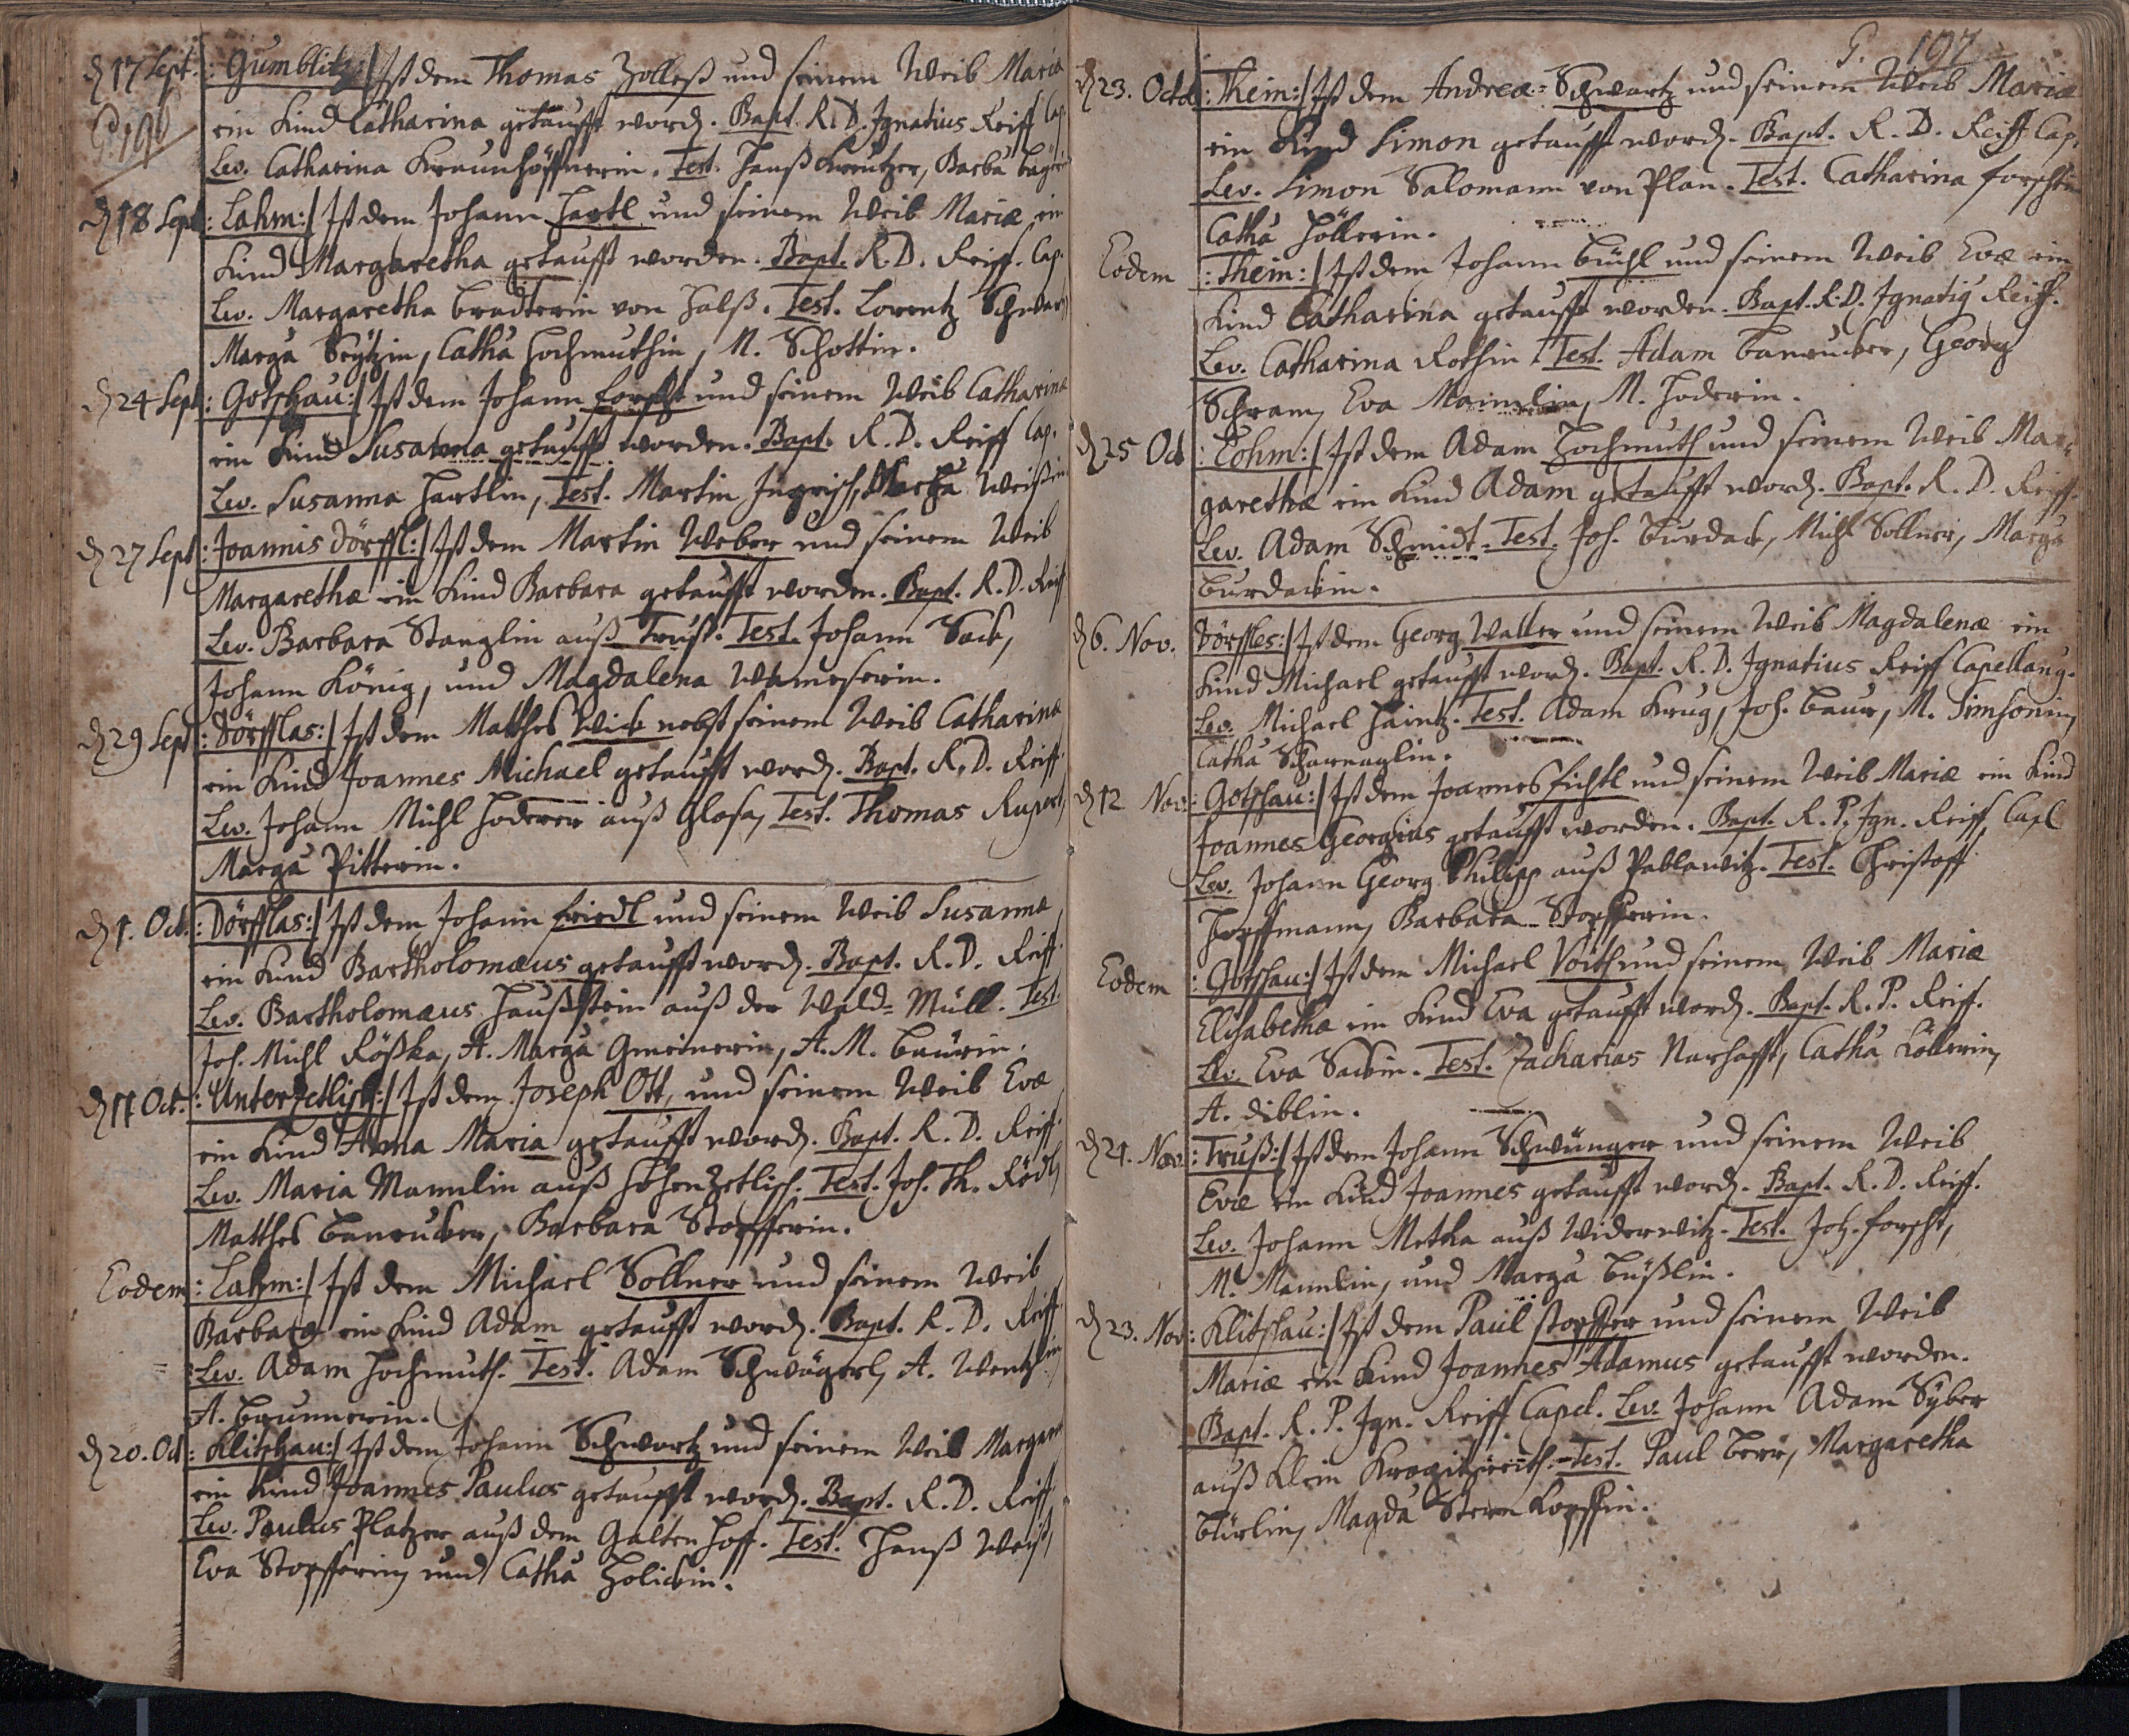 d 17 Sept. :Gumblitz:/ Ist dem Thomas Zolleß und seinem Weib Maria
P. 196
ein Kind Catharina getaufft word. Bapt. R. D. Ignatius Reiff Cap.
Lev. Catharina Braunhöfferin. Test. Hanß Kreutzer, Barba
d 18 Sept :Lahm:/ Ist dem Johann Hartl und seinem Weib Mariæ ein
Kind Margaretha getaufft worden. Bapt. R. D. Reiff. Cap.
Lev. Margaretha Bradterin von Halß. Test. Lorentz Schwartz
Marga Seytzin, Catha Hochmuthin, M. Schottin.
d 24 Sept :Gotschau:/ Ist dem Johann Forscht und seinem Weib Catharina
ein Kind Susanna getaufft worden. Bapt. R. D. Reiff Cap.
Lev. Susanna Hartlin, Test. Martin Ingrisch, Weißin
d 27 Sept :Joannis dörffl:/ Ist dem Martin Weber und seinem Weib
Margarethæ ein Kind Barbara getaufft worden. Bapt. R. D. Reiff
Lev. Barbara Stanglin auß Truß. Test. Johann Sack,
Johann König, und Magdalena Wamserin.
d 29 Sept :Dörfflas:/ Ist dem Matthes Wick nebst seinem Weib Catharina
ein Kind Joannes Michael getaufft word. Bapt. R. D. Reiff.
Lev. Johann Michl Hoderer auß Glosa, Test. Thomas Rupert,
Marga Pitterin.
d 1. Oct. :Dörfflas:/ Ist dem Johann Friedl und seinem Weib Susanna
ein Kind Bartholomæus getaufft word. Bapt. R. D. Reiff.
Lev. Bartholomæus Haußstein auß der Wald=Müll. Test.
Joh. Michl Rößka, A. Marga Gmeinerin, A. M. Baurin.
d 11 Oct. :Unterzetlisch:/ Ist dem Joseph Ott, und seinem Weib Evæ
ein Kind Anna Maria getaufft word. Bapt. R. D. Reiff.
Lev. Maria Mannlin auß Hohenzetlisch. Test. Joh. Th. Rödl,
Matthes Banrucker, Barbara Stopfferin.
Eodem :Lahm:/ Ist dem Michael Sollner und seinem Weib
Barbara ein Kind Adam getaufft word. Bapt. R. D. Reiff.
Lev. Adam Hochmuth. Test. Adam Schwägerl, A. Wentzlin
A. Brunnerin.
d 20. Oct :Klitschau:/ Ist dem Johann Schwartz und seinem Weib Margare
ein Kind Joannes Paulus getaufft word. Bapt. R. D. Reiff.
Lev. Paulus Platzer auß dem Galten Hoff. Test. Hanß Weiß,
Eva Stopfferin, und Catha Holickin.
P. 197
d 23. Octob :Thein:/ Ist dem Andreæ Schwartz und seinem Weib Mariæ
ein Kind Simon getaufft word. Bapt. R. D. Reiff Cap.
Lev. Simon Salomann von Plan. Test. Catharina Forschtin
Catha Höllerin.
Eodem :Thein:/ Ist dem Johann Bühl und seinem Weib Evæ ein
Kind Catharina getaufft worden. Bapt. R. D. Ignatig Reiff.
Lev. Catharina Rothin. Test. Adam Banrucker, Georg
Schram, Eva Mannlin, M. Hoderin.
d 25 Oct :Lohm:/ Ist dem Adam Hochmuth und seinem Weib Mar-
garethæ ein Kind Adam getaufft word. Bapt. R. D. Reiff.
Lev. Adam Schmidt. Test. Joh. Burdack, Michl Sollner, Marga
Burdackin.
d 6. Nov. Dörffles:/ Ist dem Georg Walter und seinem Weib Magdalenæ ein
Kind Michael getaufft word. Bapt. R. D. Ignatius Reiff Capellang.
Lev. Michael Haintz. Test. Adam Krug, Joh. Baur, M. Simsonin,
Catha Scharnaglin.
d 12 Nov. :Gotschau:/ Ist dem Joannes Fichtl und seinem Weib Mariæ ein Kind
Joannes Georgius getaufft worden. Bapt. R. P. Ign. Reiff Capl
Lev. Johann Georg Philipp auß Pablawitz. Test. Christoff
Hopffmann, Barbara Stopfferin.
Eodem :Gotschau:/ Ist dem Michael Voith und seinem Weib Mariæ
Elisabethæ ein Kind Eva getaufft word. Bapt. R. P. Reiff.
Lev. Eva Sackin. Test. Zacharias Narhafft, Catha Köllerin,
A. Diblin.
d 21. Nov. :Truß:/ Ist dem Johann Schwünger und seinem Weib
Evæ ein Kind Joannes getaufft word. Bapt. R. D. Reiff.
Lev. Johann Metka auß Widerwitz. Test. Joh. Forscht,
M. Mannlin, und Marga Büßlin.
d 23. Nov :Klitschau:/ Ist dem Paul Stopffer und seinem Weib
Mariæ ein Kind Joannes Adamus getaufft worden.
Bapt. R. P. Ign. Reiff Capel. Lev. Johann Adam Syber
auß Klein Test. Paul Berr, Margaretha
Bürlin, Magda Stern Kopffin.